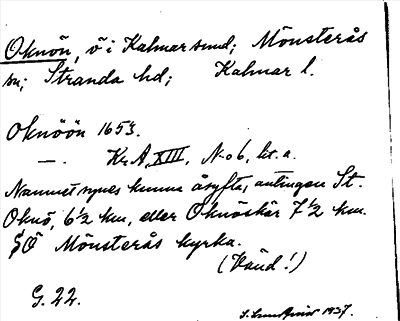 Oknön, ö i Kalmarsund; Mönsterås
sn; Stranda hd; Kalmar l.
Oknöön 1653.
—. Kr.A, XIII, N:o 6, lit. a.
Namnet synes kunna åsyfta, antingen St.
Oknö, 6½ km, eller Oknöskär 7½ km.
SÖ Mönsterås kyrka.
(Vänd!)
G. 22.
1937.